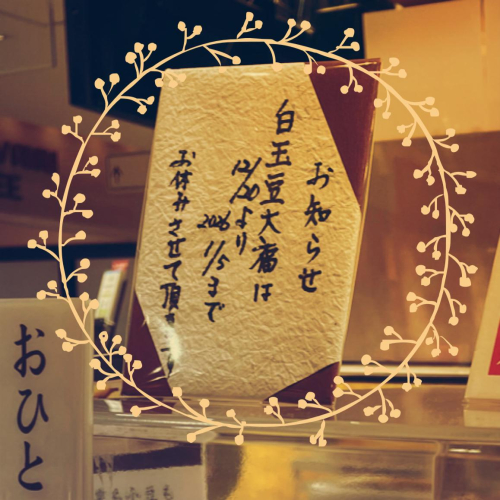 お知らせ
白玉豆大福は
12/20より
2026 1/5まで
お休みさせて頂き
おひと